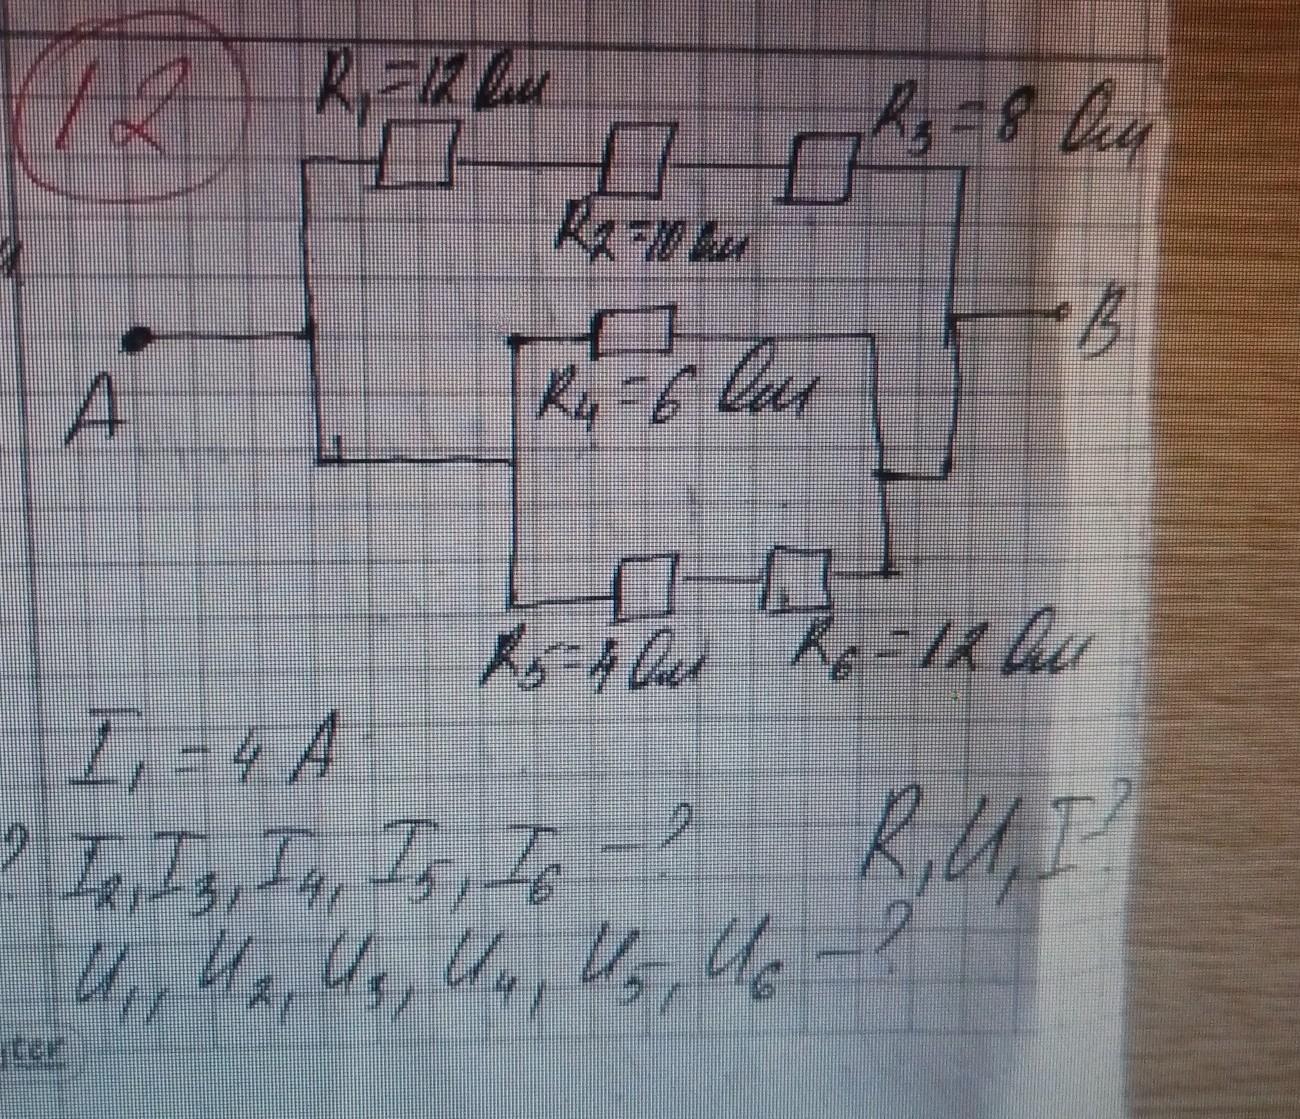 12
R₁=12 Ом
R₃=8 Ом
R₂=10 Ом
A
B
R₄=6 Ом
R₅=4 Ом
R₆=12 Ом
I₁=4 A
? I₂, I₃, I₄, I₅, I₆ -?
R, U, I?
U₁, U₂, U₃, U₄, U₅, U₆ -?